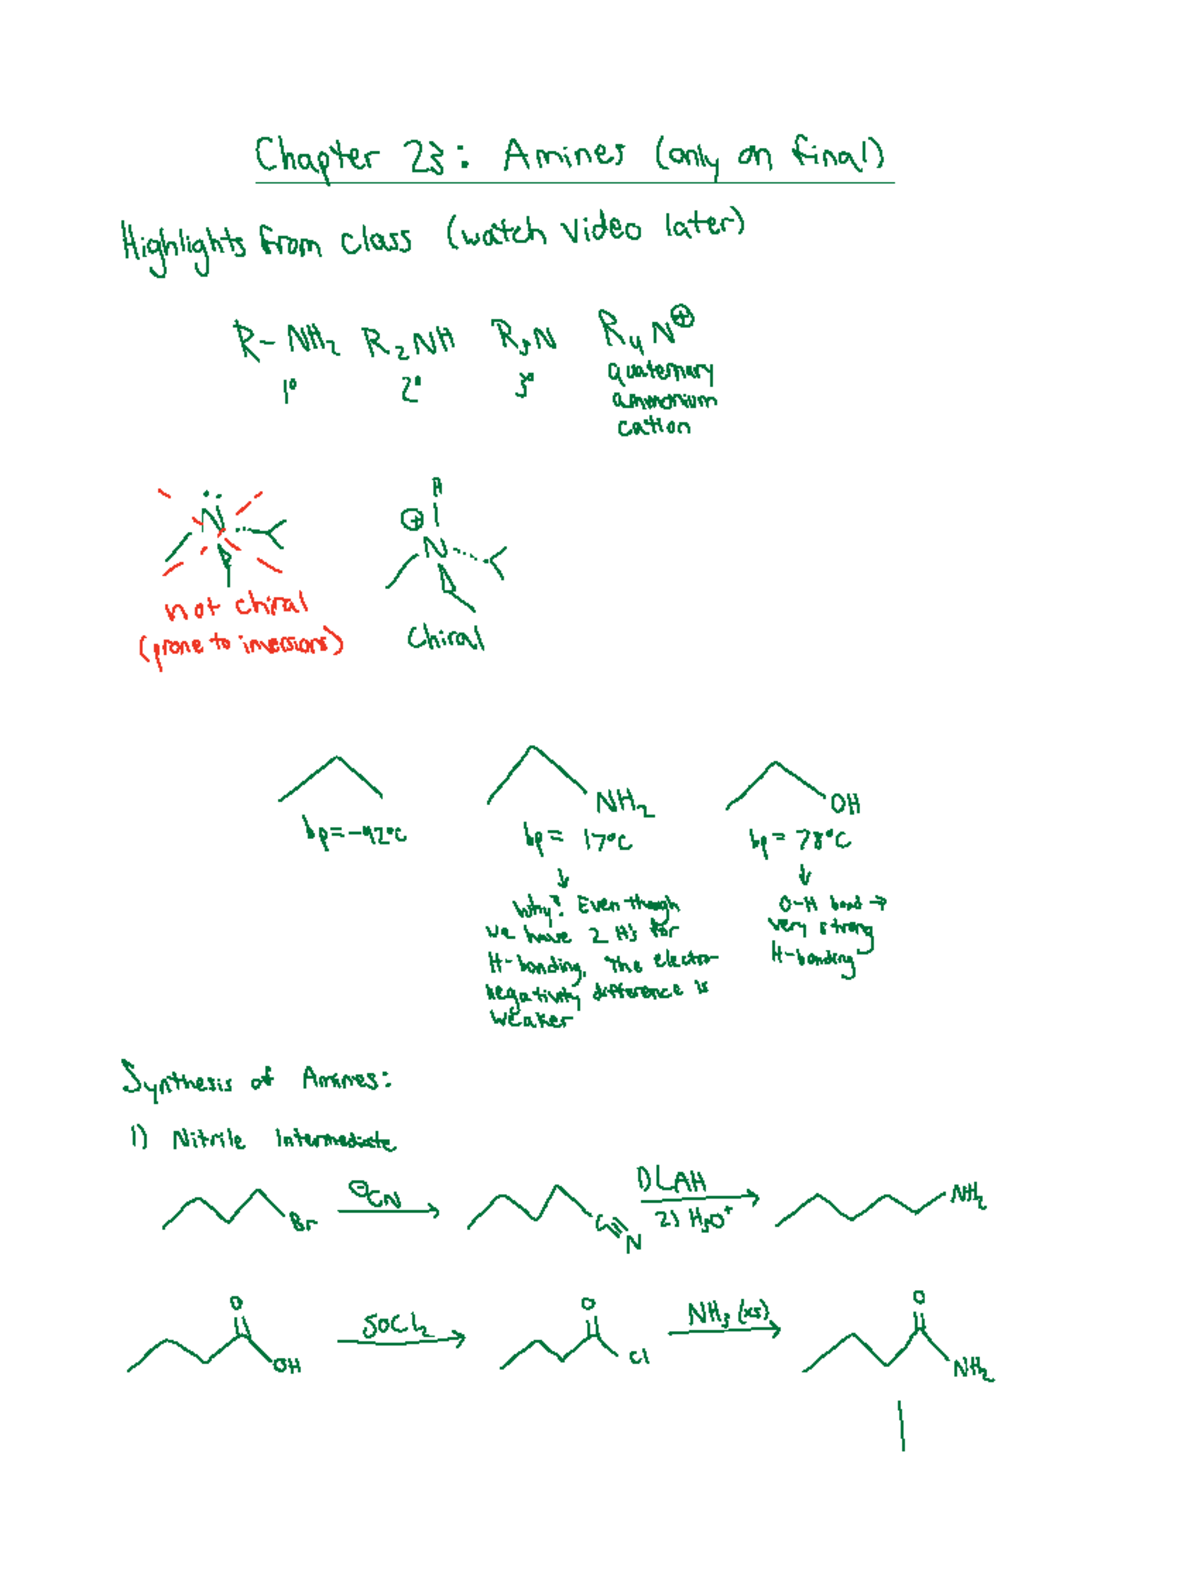 Chapter 23: Amines (only on final)
Highlights from class (watch video later)
R-NH₂ R₂NH R₃N R₄N⊕
1° 2° 3° quaternary
ammonium
cation
N
not chiral
(prone to inversions)
H
⊕
N
Chiral
NH₂
OH
bp=-42°C
bp= 17°C
bp= 78°C
Why? Even though
we have 2 H's for
H-bonding, the electro-
negativity difference is
weaker
O-H bond →
very strong
H-bonding
Synthesis of Amines:
1) Nitrile Intermediate
Br
⊖CN
C≡N
1) LAH
2) H₃O⁺
NH₂
O
OH
SOCl₂
O
Cl
NH₃ (xs)
O
NH₂